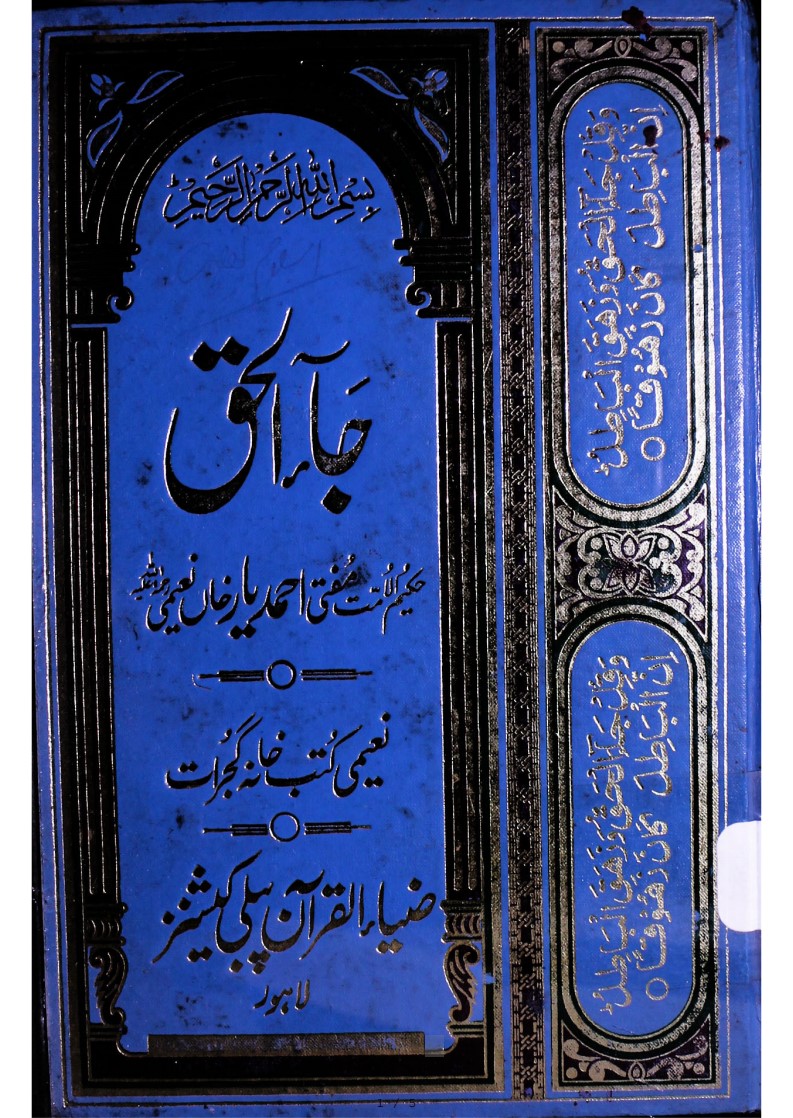 بِسْمِ اللهِ الرَّحْمٰنِ الرَّحِيْمِ
جَآءَ الحق
حکیمُ الاُمت مُفتی احمد یار خاں نعیمی رحمۃ اللہ علیہ
نعیمی کُتب خانہ گجُرات
ضیاء القرآن پبلی کیشنز
لاہور
وَقُلْ جَآءَ الْحَقُّ وَزَهَقَ الْبَاطِلُ
اِنَّ الْبَاطِلَ كَانَ زَهُوْقًا ○
وَقُلْ جَآءَ الْحَقُّ وَزَهَقَ الْبَاطِلُ
اِنَّ الْبَاطِلَ كَانَ زَهُوْقًا ○